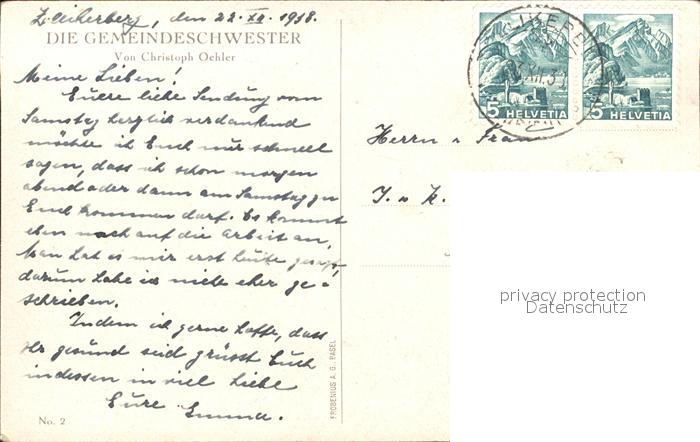 Zollikerberg, den 22. XII. 1938.
DIE GEMEINDESCHWESTER
Von Christoph Oehler
Meine Lieben!
Euere liebe Sendung vom
Samstag herzlich verdankend
möchte ich Euch nur schnell
sagen, dass ich schon morgen
abend oder dann am Samstag zu
Euch kommen darf. Es kommt
eben noch auf die Arbeit an,
Man hat es mir erst heute gesagt,
darum habe ich nicht eher ge-
schrieben.
Indem ich gerne hoffe, dass
Ihr gesund seid grüsst Euch
indessen in viel Liebe
Eure Emma.
No. 2
FROBENIUS A. G. BASEL
5 HELVETIA
5 HELVETIA
Herrn u. Frau
J. u. K.
privacy protection
Datenschutz